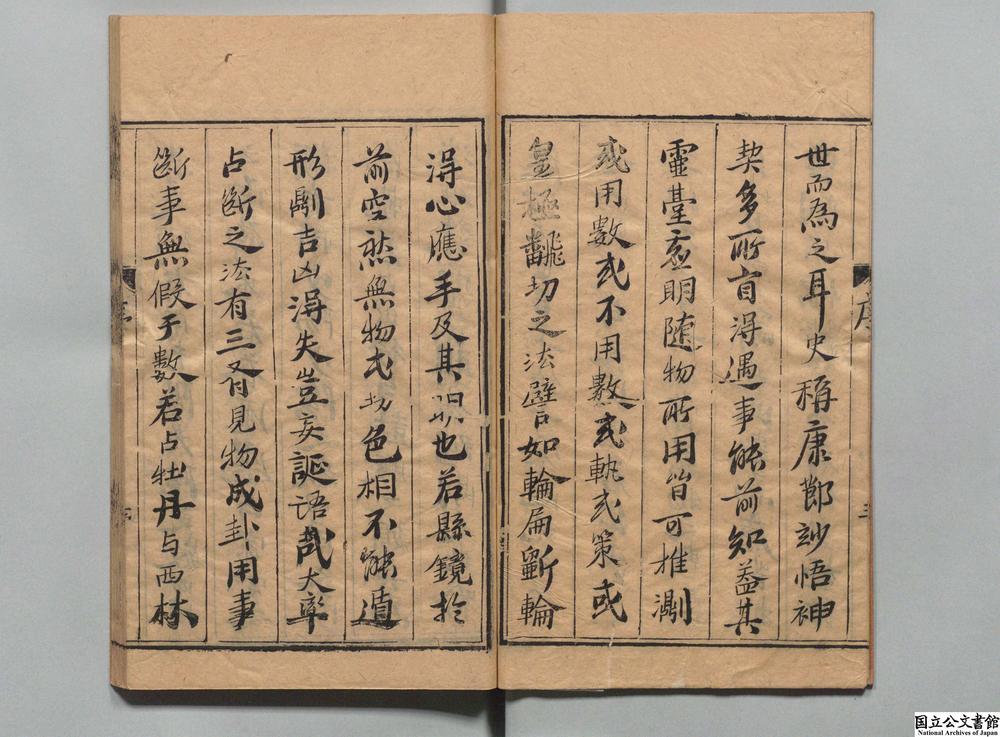 世而為之耳史稱康節妙悟神
契多所自得遇事能前知蓋其
靈臺虛明隨物所用皆可推測
或用數或不用數或軌或策或
皇極飜切之法譬如輪扁斲輪
得心應手及其 也若縣鏡於
前空然無物或 色相不能遁
形劇吉凶得失豈妄誕語哉大率
占斷之法有三有見物成卦用事
斷事無假于數若占牡丹與西林
序
三
国立公文書館
National Archives of Japan